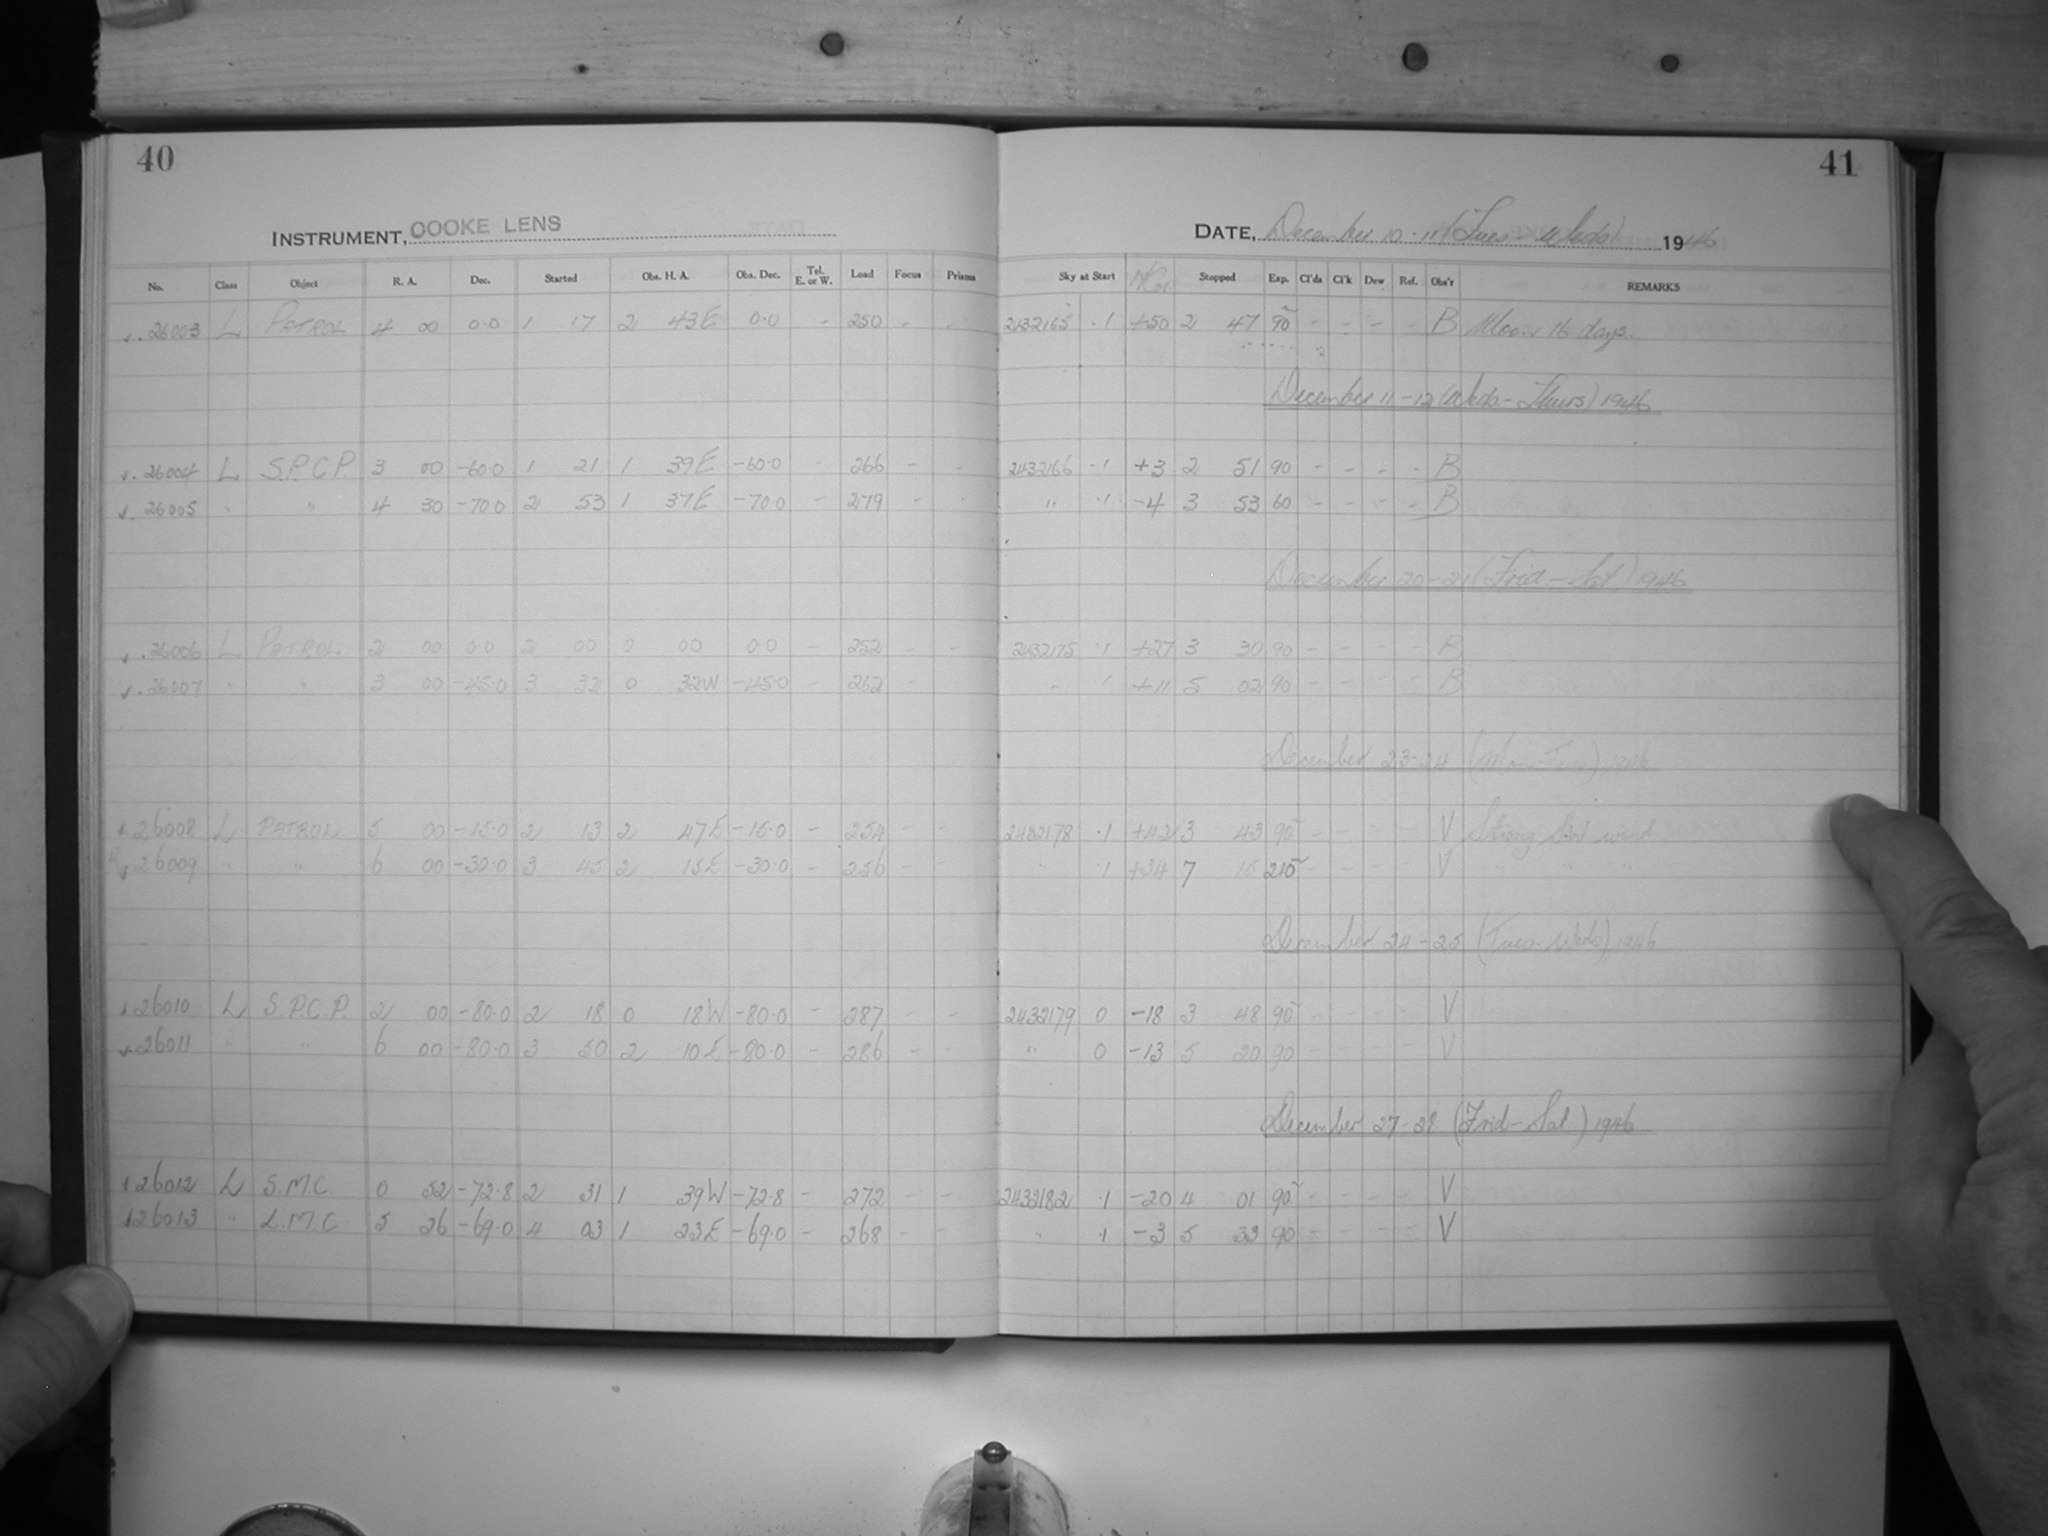 40
INSTRUMENT, COOKE LENS
No. Class Object R. A. Dec. Started Obs. H. A. Obs. Dec. Tel. E. or W. Load Focus Prisms
26003 L PATROL 4 00 0.0 1 17 2 43E 0.0 - 250 - -
26004 L S.P.C.P. 3 00 -60.0 1 21 1 39E -60.0 - 266 - -
26005 " " 4 30 -70.0 2 53 1 37E -70.0 - 279 - -
26006 L PATROL 2 00 0.0 2 00 0 00 0.0 - 252 - -
26007 " " 3 00 -45.0 3 32 0 32W -45.0 - 262 - -
26008 L PATROL 5 00 -15.0 2 13 2 47E -15.0 - 254 - -
26009 " " 6 00 -30.0 3 45 2 15E -30.0 - 256 - -
26010 L S.P.C.P. 2 00 -80.0 2 18 0 18W -80.0 - 287 - -
26011 " " 6 00 -80.0 3 50 2 10E -80.0 - 286 - -
26012 L S.M.C. 0 52 -72.8 2 31 1 39W -72.8 - 272 - -
26013 " L.M.C 5 26 -69.0 4 03 1 23E -69.0 - 268 - -
41
DATE, December 10-11 (Tues - Weds) 1946
Sky at Start Stopped Exp. Cl'ds Cl'k Dew Ref. Obs'r REMARKS
2432165 .1 +50 2 47 90 - - - - B Moon 16 days.
December 11-12 (Weds.-Thurs) 1946
2432166 .1 +3 2 51 90 - - - - B
" .1 -4 3 53 60 - - - - B
December 20-21 (Frid-Sat) 1946
2432175 .1 +27 3 30 90 - - - - B
" .1 +11 5 02 90 - - - - B
December 23-24 (Mon-Tues) 1946
2432178 .1 +42 3 43 90 - - - - V Strong wind
" .1 +34 7 15 210 - - - - V " "
December 24-25 (Tues-Weds) 1946
2432179 0 -18 3 48 90 - - - - V
" 0 -13 5 20 90 - - - - V
December 27-28 (Frid-Sat) 1946
2432182 .1 -20 4 01 90 - - - - V
" .1 -3 5 33 90 - - - - V